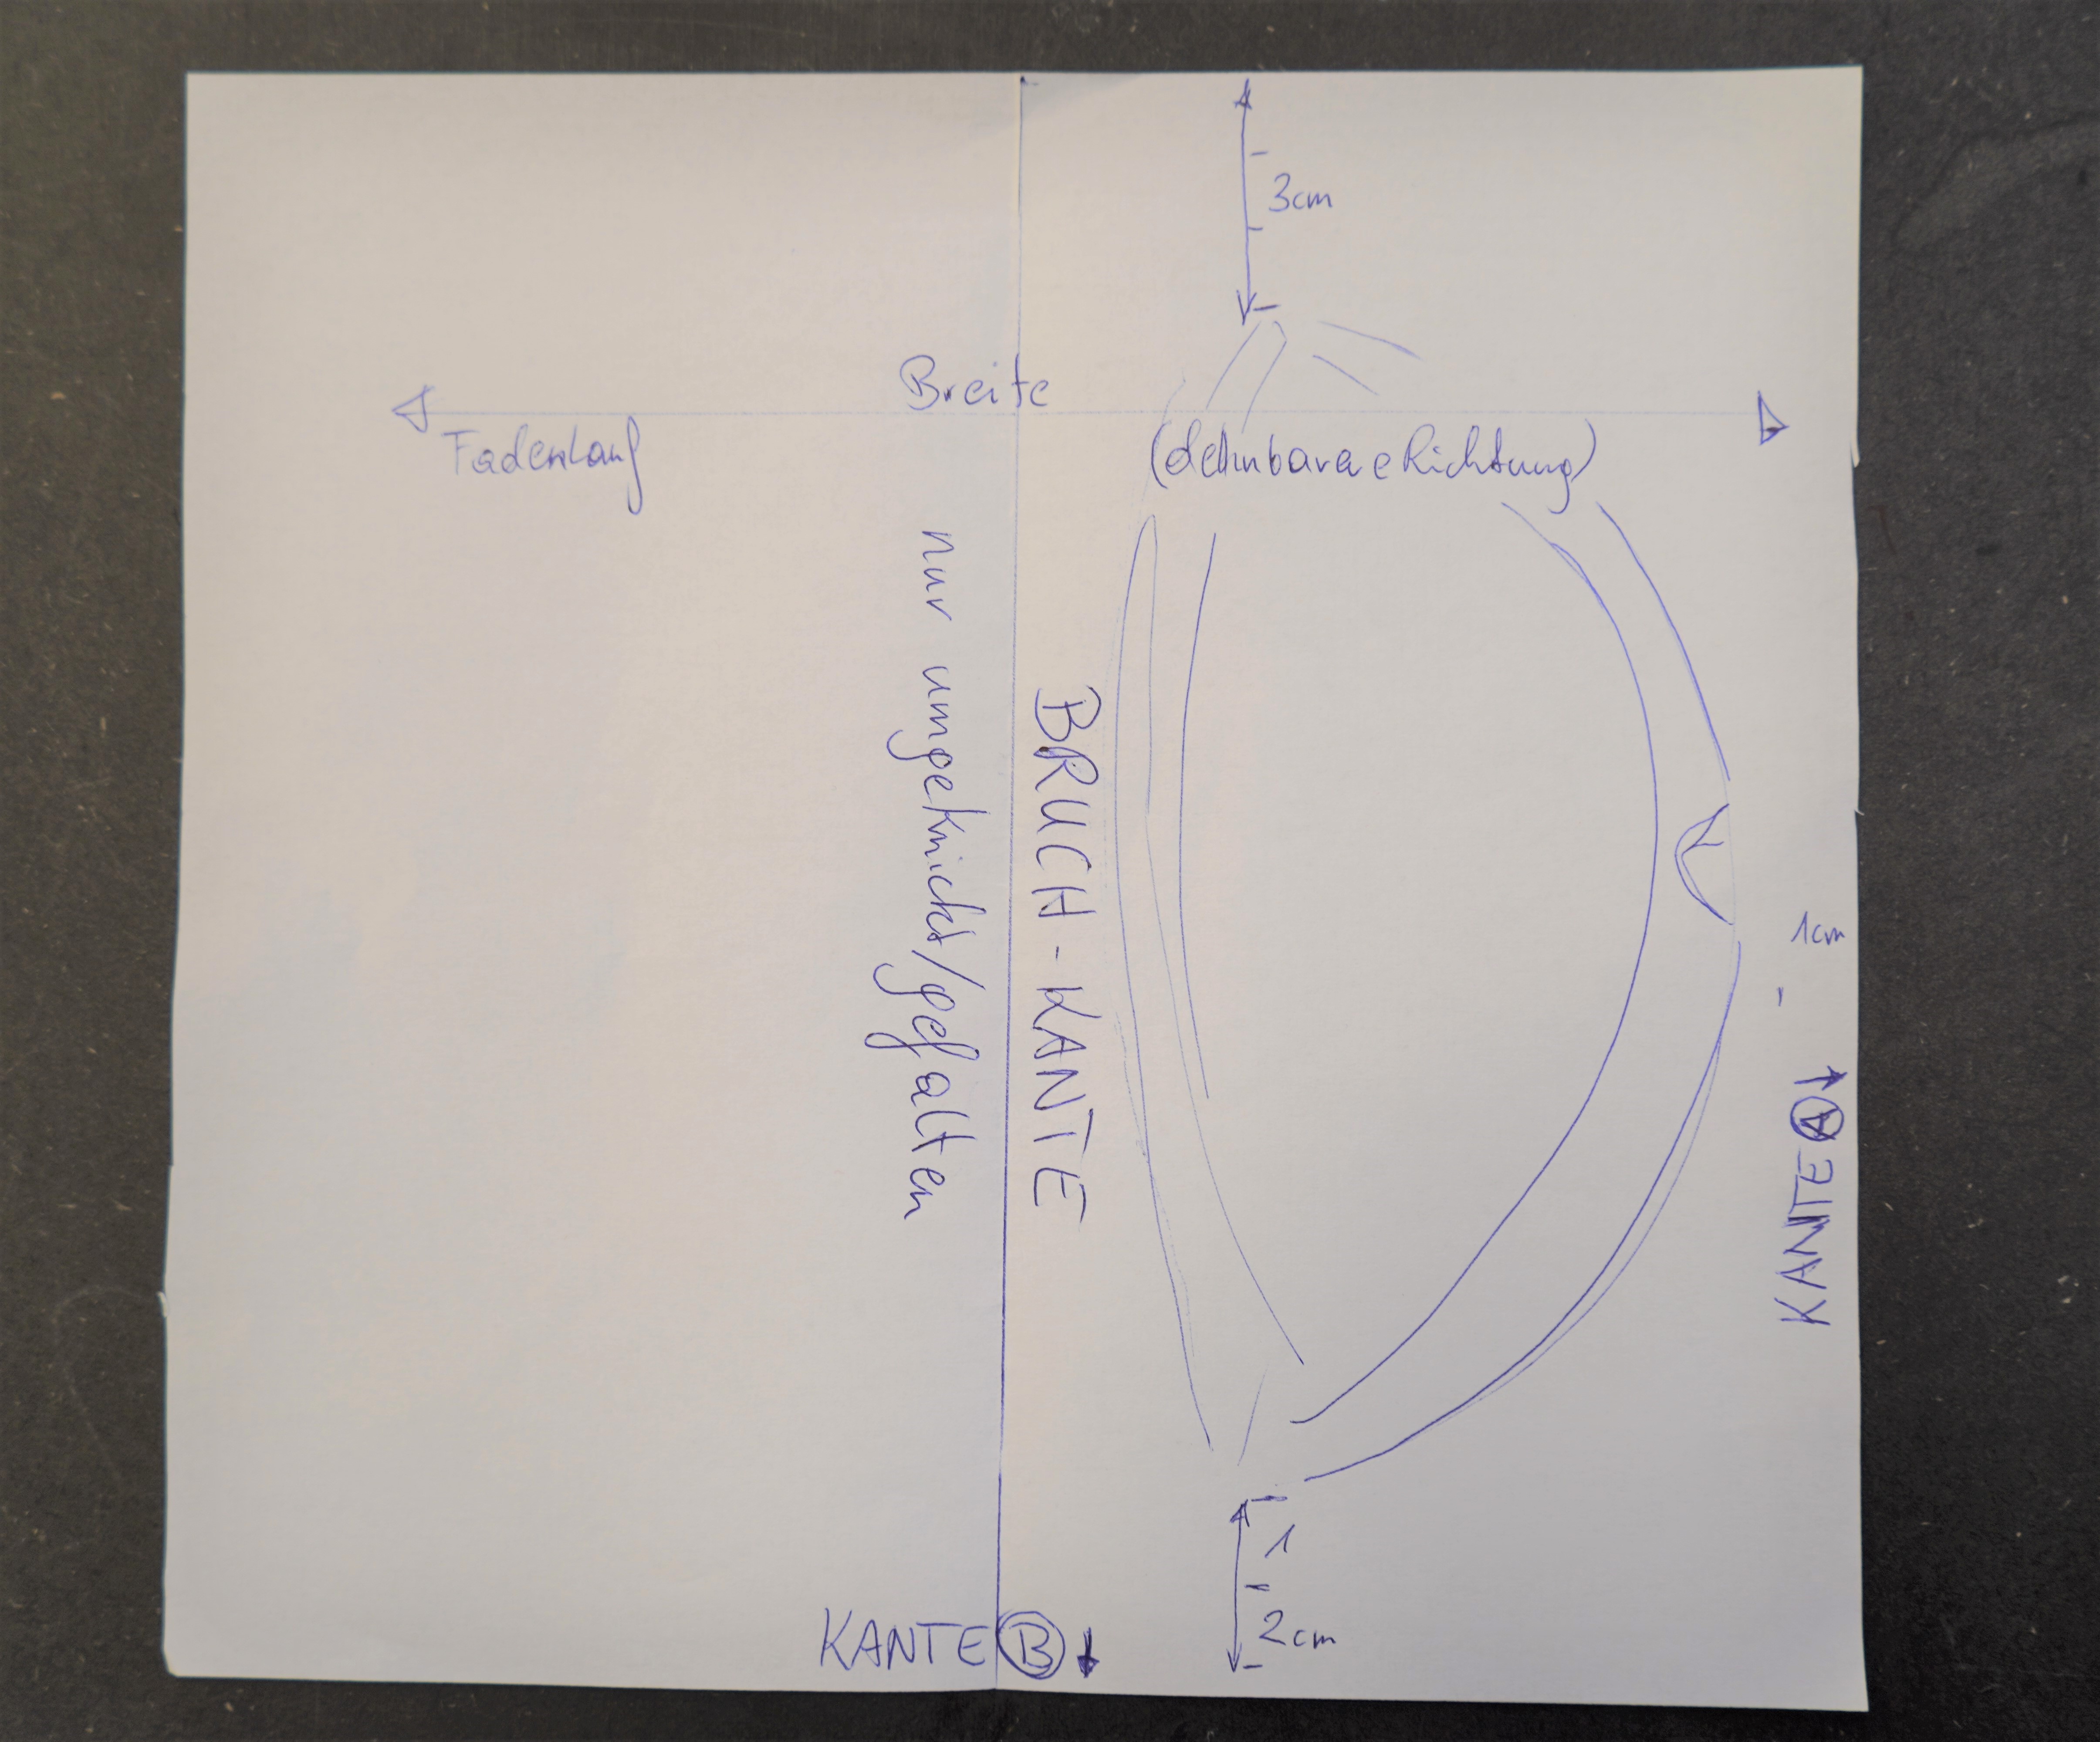 3cm
Breite
Fadenlauf
(dehnbarere Richtung)
nur umgeknickt/gefalten
BRUCH-KANTE
1cm
KANTE A
1
2cm
KANTE B